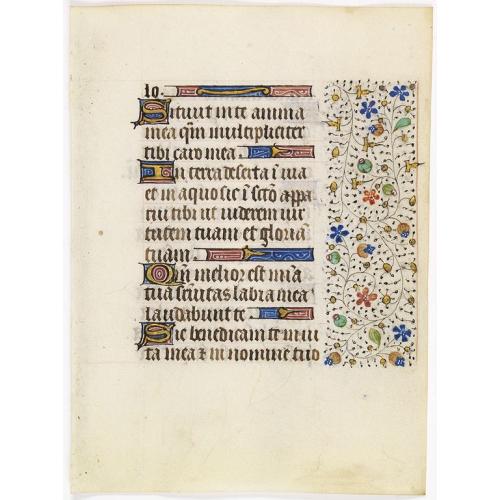 lo.
Sitivit in te anima
mea qm̄ multipliciter
tibi caro mea.
In terra deserta ī via
et in aquo sic ī sc̄to appa
rui tibi ut viderem vir
tutem tuam et gloriā
tuam.
Qm̄ melior est mīa
tua sr̄ vitas labia mea
laudabunt te
Sic benedicam te in vi
ta mea ⁊ in nomine tuo